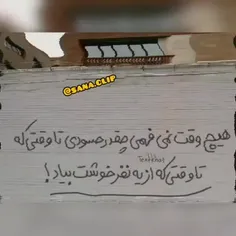 @SANA.CLIP
هیچ وقت نمی فهمی چقدر حسودی تا وقتی که
تا وقتی که از یه نفر خوشت بیاد!